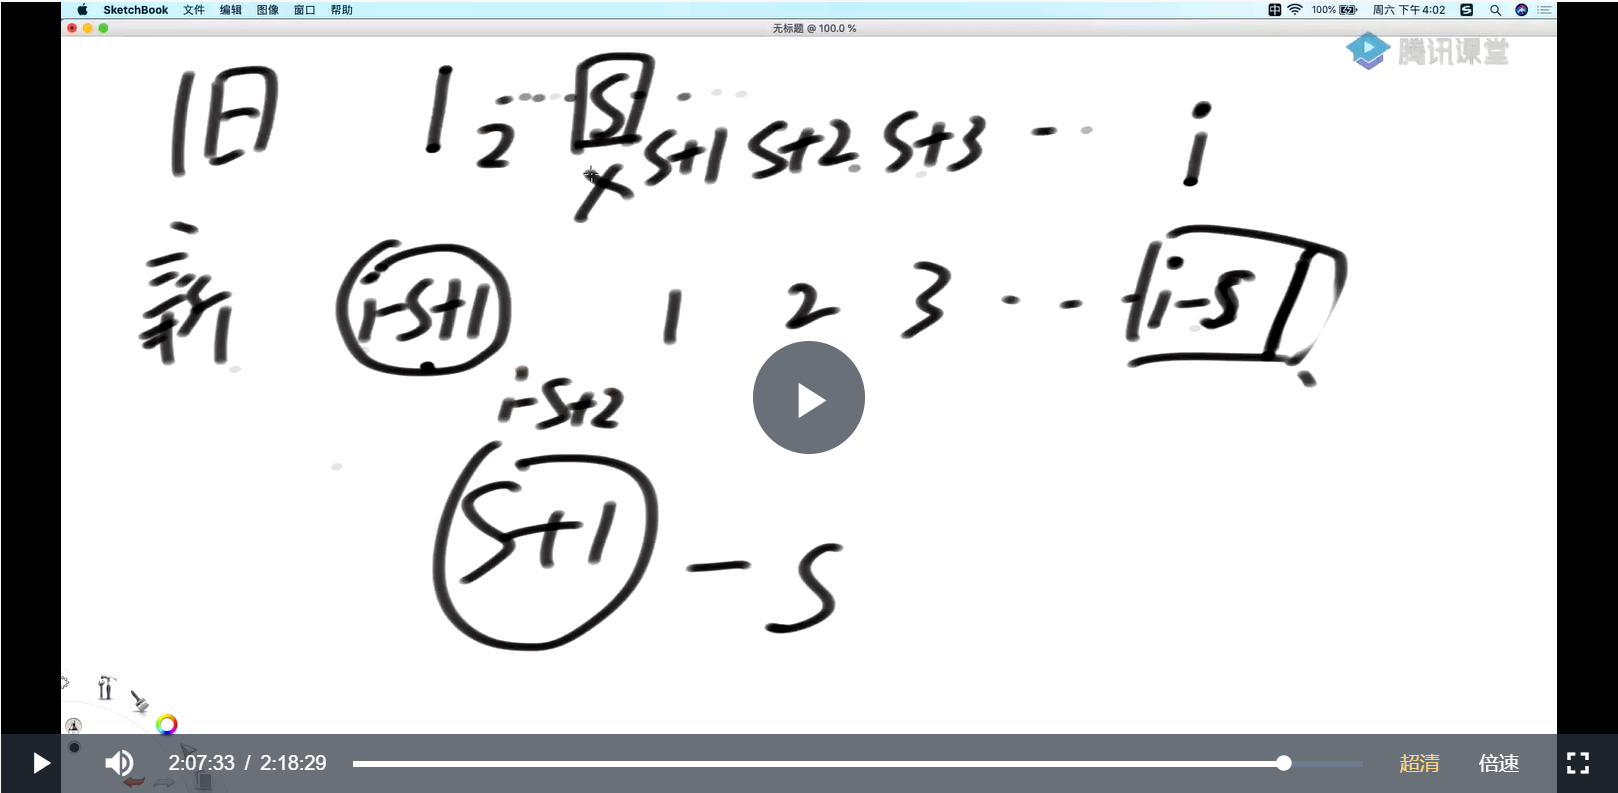 SketchBook 文件 编辑 图像 窗口 帮助 100% 周六 下午4:02
无标题 @ 100.0 %
腾讯课堂
旧 1 2 S S+1 S+2 S+3 i
x
新 i-S+1 1 2 3 i-S
i-S+2
S+1 - S
2:07:33 / 2:18:29 超清 倍速